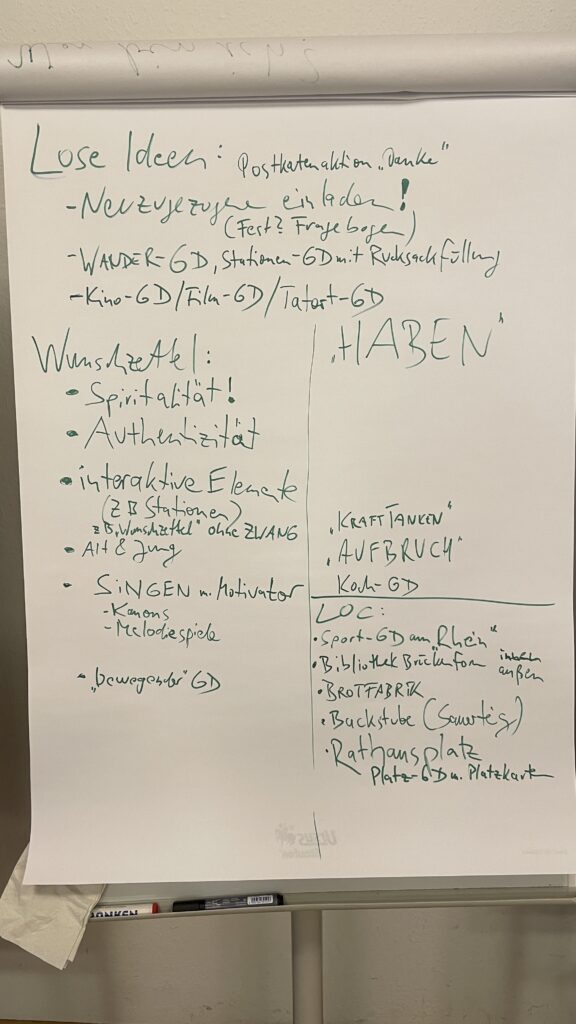 Wer bin ich?
Lose Ideen: Postkatenaktion „Danke“
- Neuzugezogene einladen!
(Fest? Fragebogen)
- WANDER-GD, Stationen-GD mit Rucksackfüllung
- Kino-GD/Film-GD/Tatort-GD
Wunschzettel:
• Spiritalität!
• Authentizität
• interaktive Elemente
(z B Stationen)
z B „Wunschzettel“ ohne ZWANG
• Alt & Jung
• SINGEN m. Motivator
- Kanons
- Melodiespiele
• „bewegender“ GD
„HABEN“
„KRAFT TANKEN“
„AUFBRUCH“
Koch-GD
LOC:
• Sport-GD am „Rhein“
• Bibliothek Brückenforum
außen
• BROTFABRIK
• Backstube (Sauerteig)
• Rathausplatz
Platz-GD m. Platzkarte